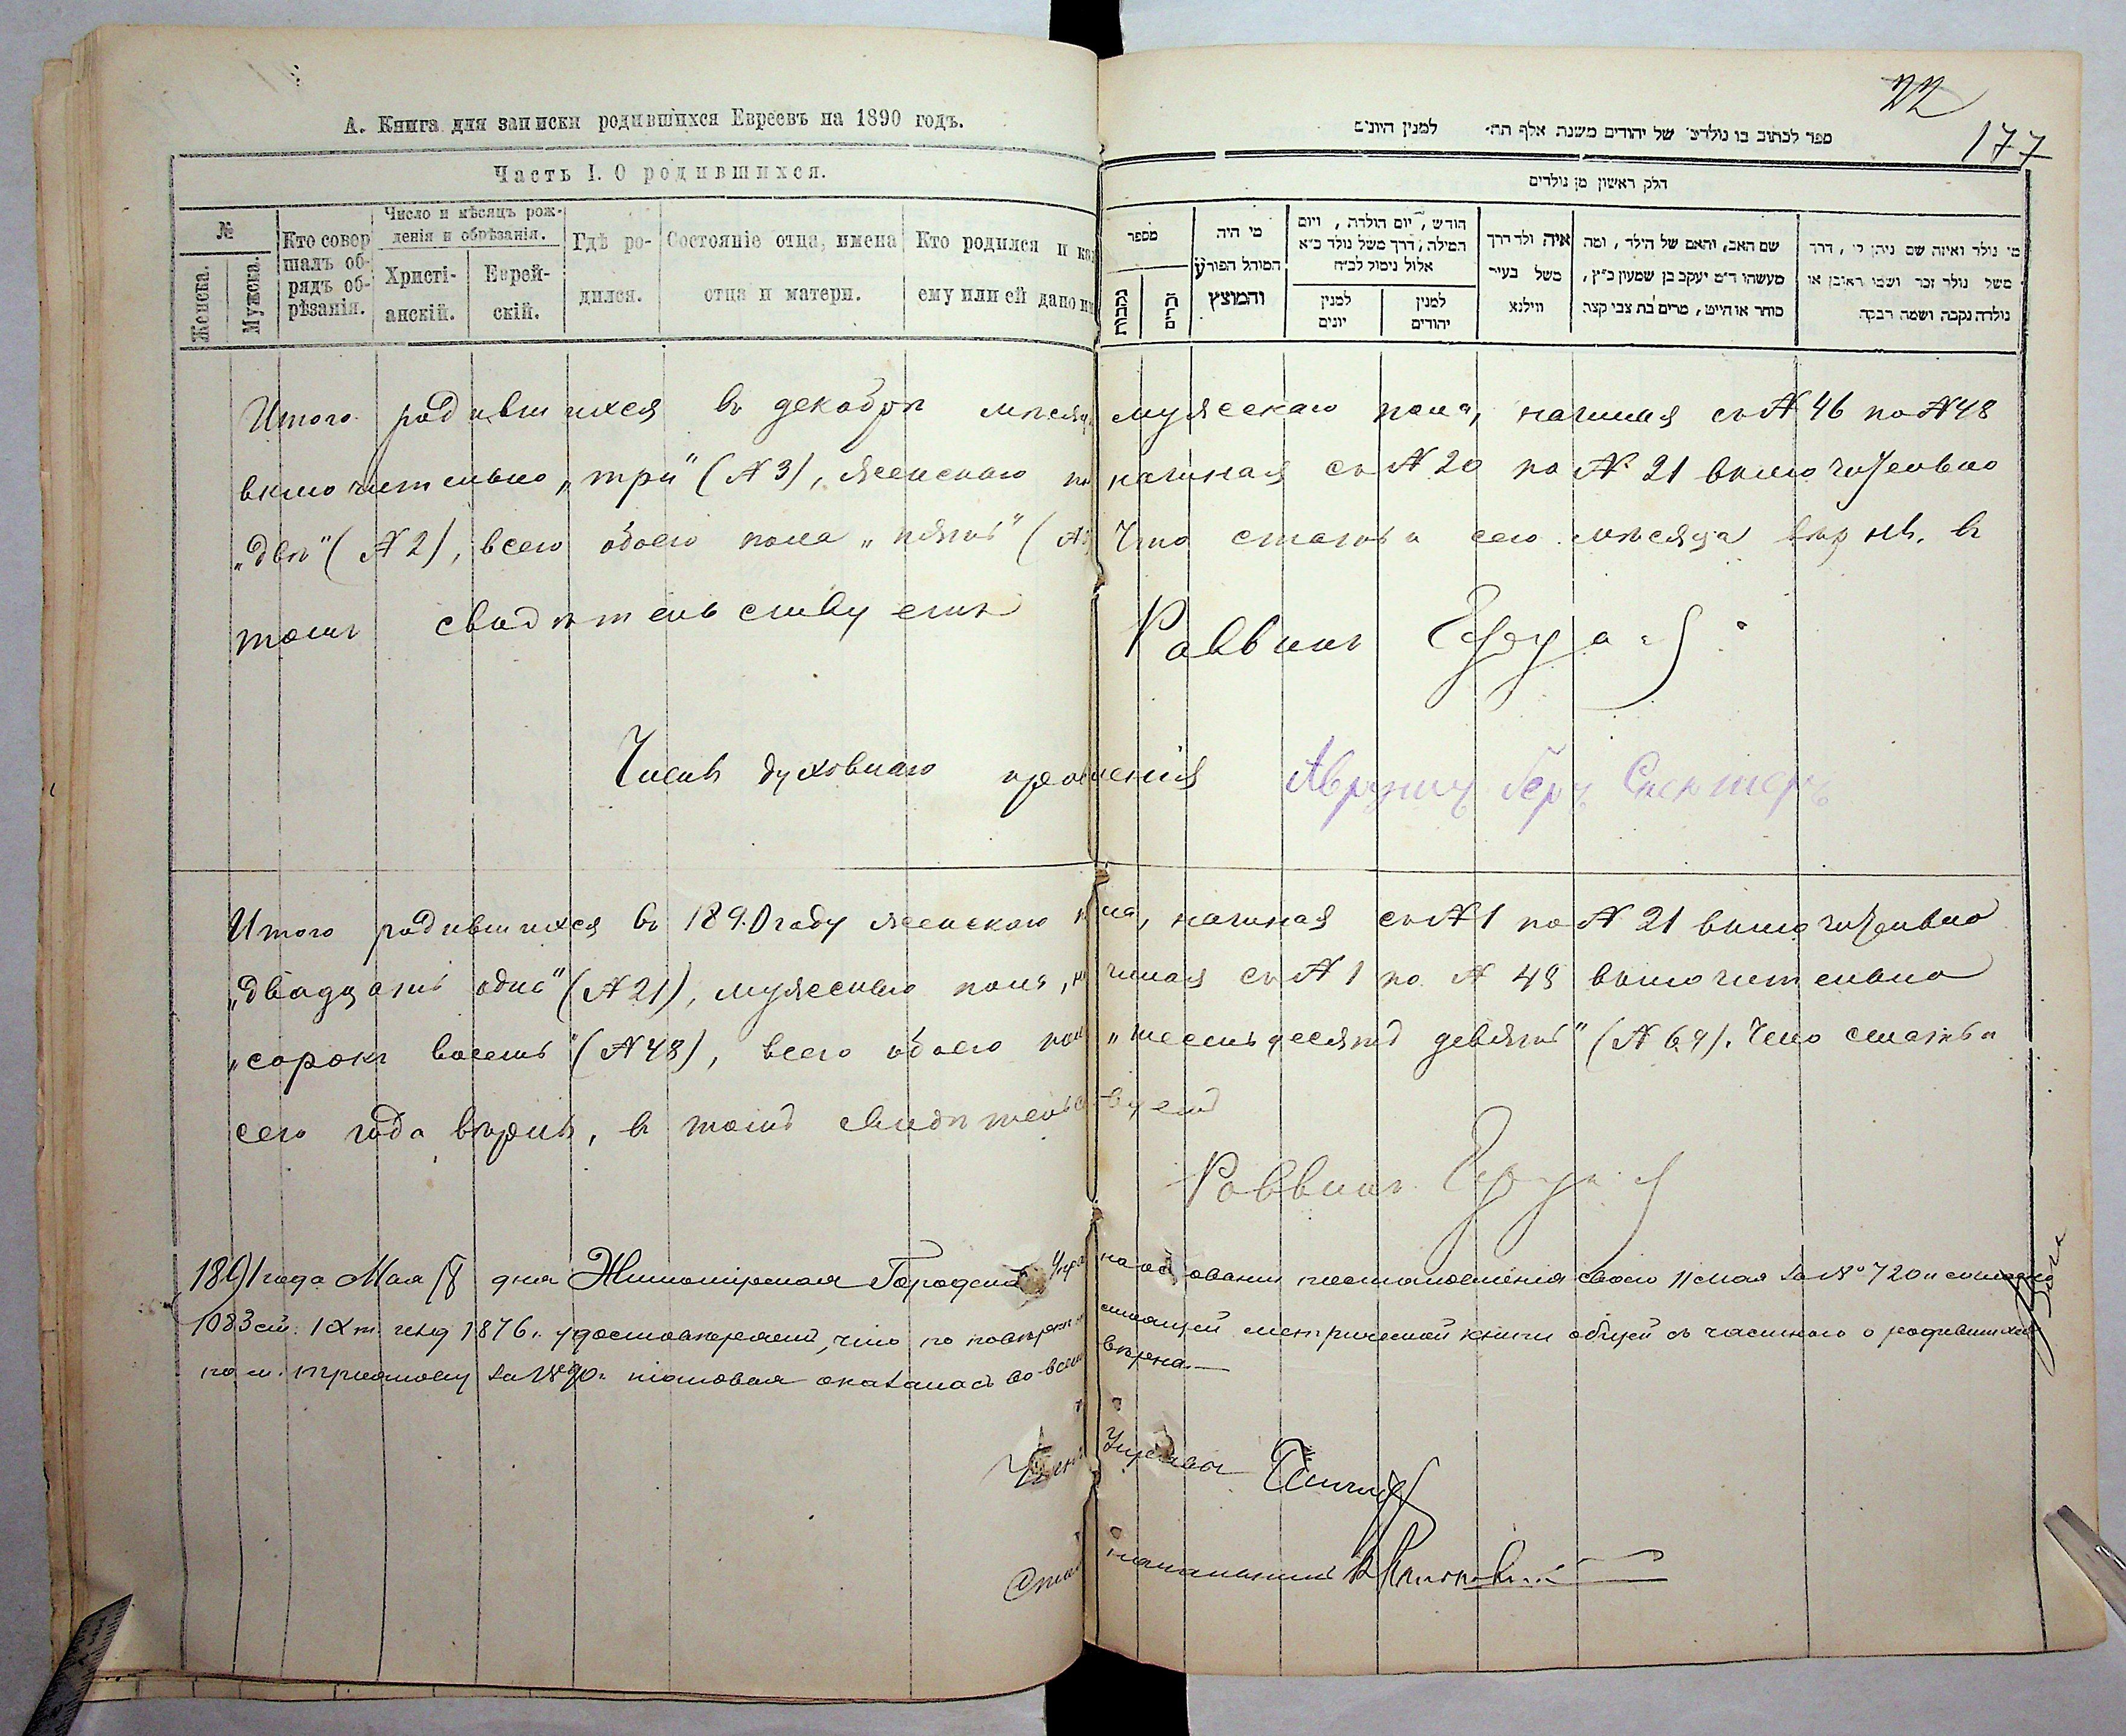 22
177
А. Книга для записки родившихся Евреевъ на 1890 годъ.
ספר לכתוב בו נולדים של יהודים משנת אלף תת׳ למנין היונים
Часть I. О родившихся.
חלק ראשון מן נולדים
№
Женска.
Мужска.
Кто совер
шалъ об-
рядъ об-
рѣзанія.
Число и мѣсяцъ рож-
денія и обрѣзанія.
Христі-
анскій.
Еврей-
скій.
Гдѣ ро-
дился.
Состояніе отца, имена
отца и матери.
Кто родился и как
ему или ей дано и
מספר
נקבות
זכרים
מי היה
המוהל הפורע
והמוצץ
חודש, יום הולדה, ויום
המילה, דרך משל נולד כ״א
אלול נימול לכ״ח
למנין
יונים
למנין
יהודים
איה ולד דרך
משל בעיר
ווילנא
שם האב, והאם של הילד, ומה
מעשהו ד״מ יעקב בן שמעון כ״ץ,
סוחר או חייט, מרים בת צבי קצב
מי נולד ואיזה שם ניתן לו, דרך
משל נולד זכר ושמו ראובן או
נולדה נקבה ושמה רבקה
Итого родившихся въ декабрѣ мѣсяц мужескаго пола, начиная съ № 46 по № 48
включительно „три" (№ 3), женскаго по начиная съ № 20 по № 21 включительно
„двѣ" (№ 2), всего обоего пола „пять" (№ Что статьи сего мѣсяца вѣрны, въ
томъ свидѣтельствуетъ Раввинъ
Членъ духовнаго правленія Аврумъ Геръ Спекторъ
Итого родившихся въ 1890 году женскаго пола, начиная съ № 1 по № 21 включительно
„двадцать одна" (№ 21), мужескаго пола, начиная съ № 1 по № 48 включительно
„сорокъ восемь" (№ 48), всего обоего пола „шестьдесятъ девять" (№ 69). Что статьи
сего года вѣрны, въ томъ свидѣтельствуетъ
Раввинъ
1891 года Мая дня Житомірская Городская Упра на основаніи постановленія своего 11 мая за № 720 и согласно
1083 ст. IX т. изд 1876 г. удостовѣряетъ, что по повѣркѣ метрической книги общей съ частного о родившихся
по м. за 1890 г. таковая оказалась во всемъ вѣрна.—
Членъ Управы